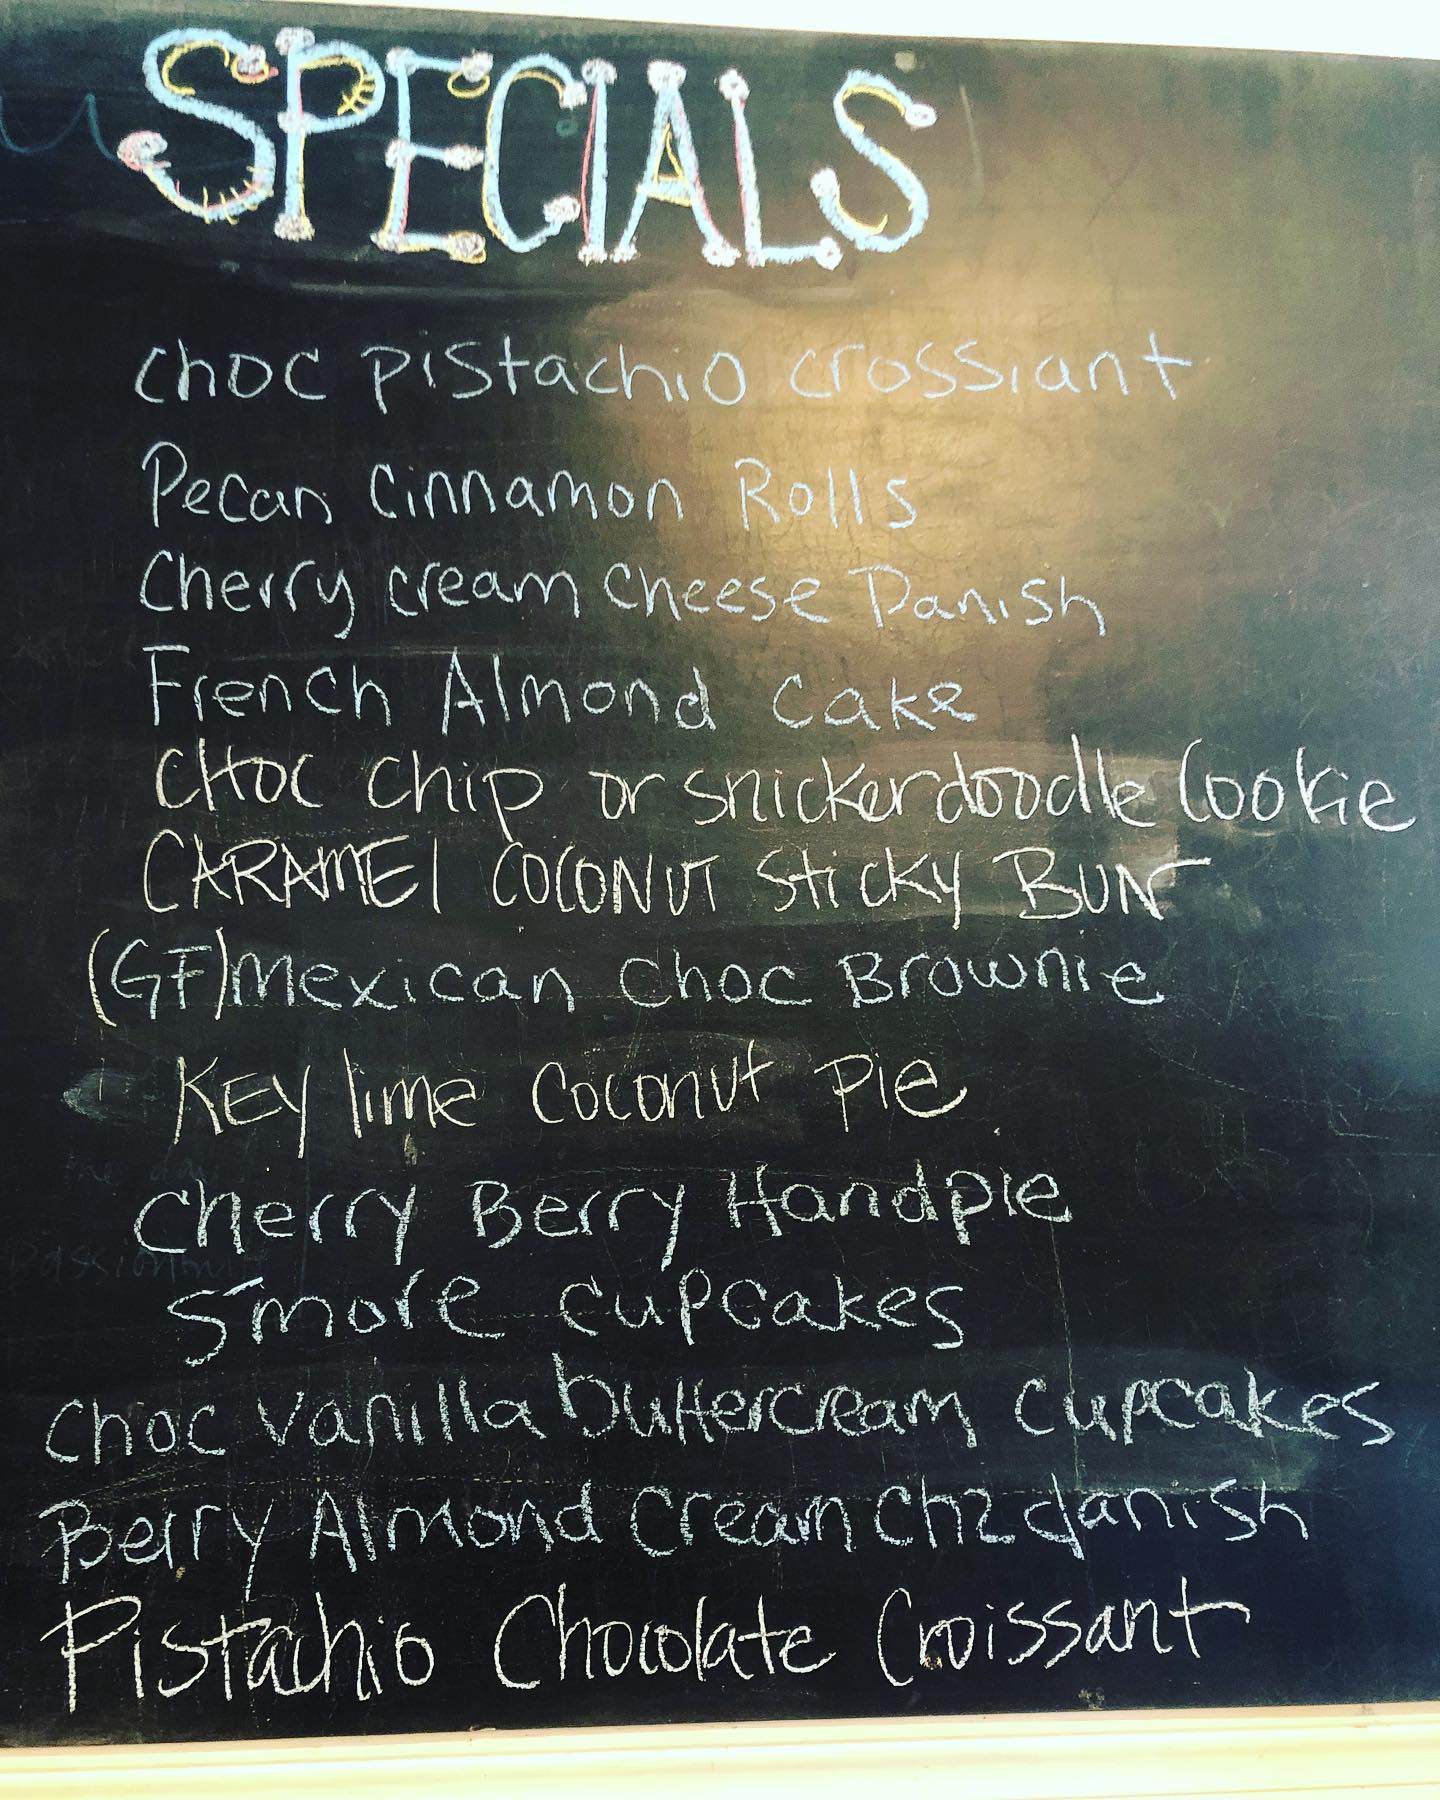 SPECIALS
choc pistachio crossiant
Pecan Cinnamon Rolls
Cherry cream cheese Danish
French Almond cake
CHOC chip or snickerdoodle Cookie
CARAMEl COCONUT Sticky BUN
(GF) Mexican choc Brownie
KEY lime coconut pie
Cherry Berry Handpie
S'more cupcakes
Choc vanilla buttercream cupcakes
Berry Almond cream chz danish
Pistachio Chocolate Croissant